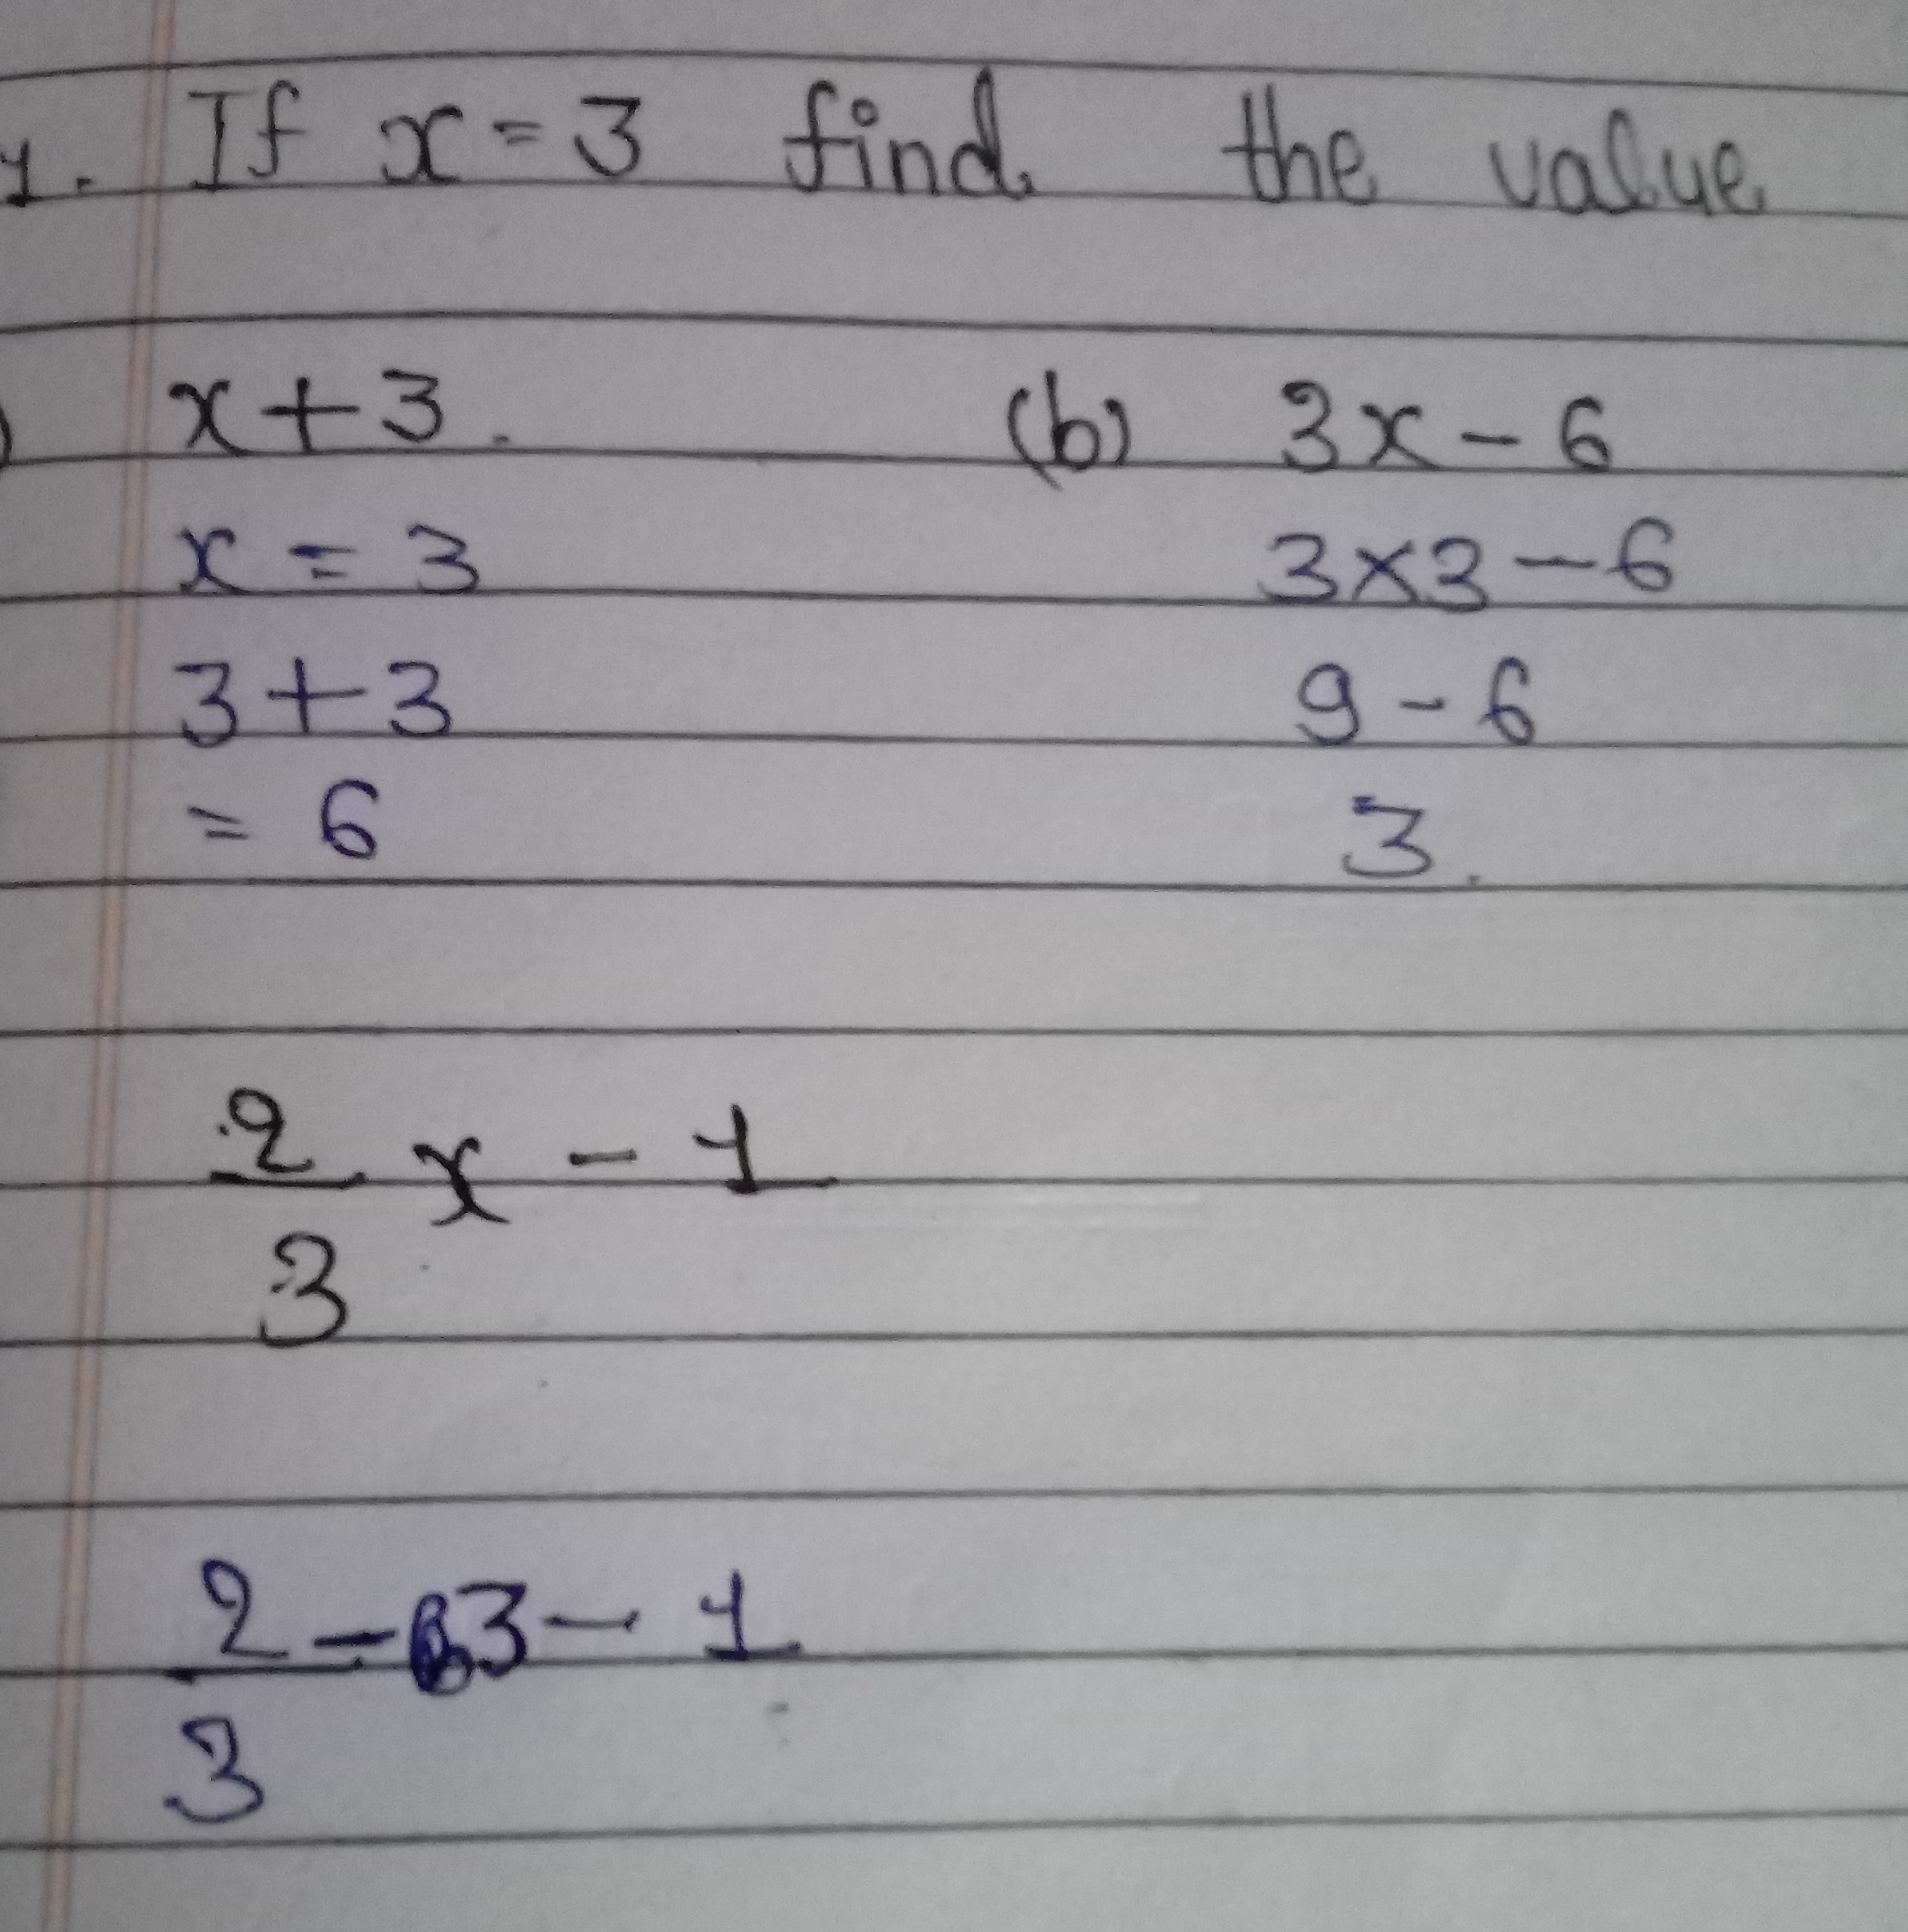 1. If x = 3 find the value
) x + 3.
x = 3
3 + 3
= 6
(b) 3x - 6
3 × 3 - 6
9 - 6
3.
2/3 x - 1
2/3 - 3 - 1